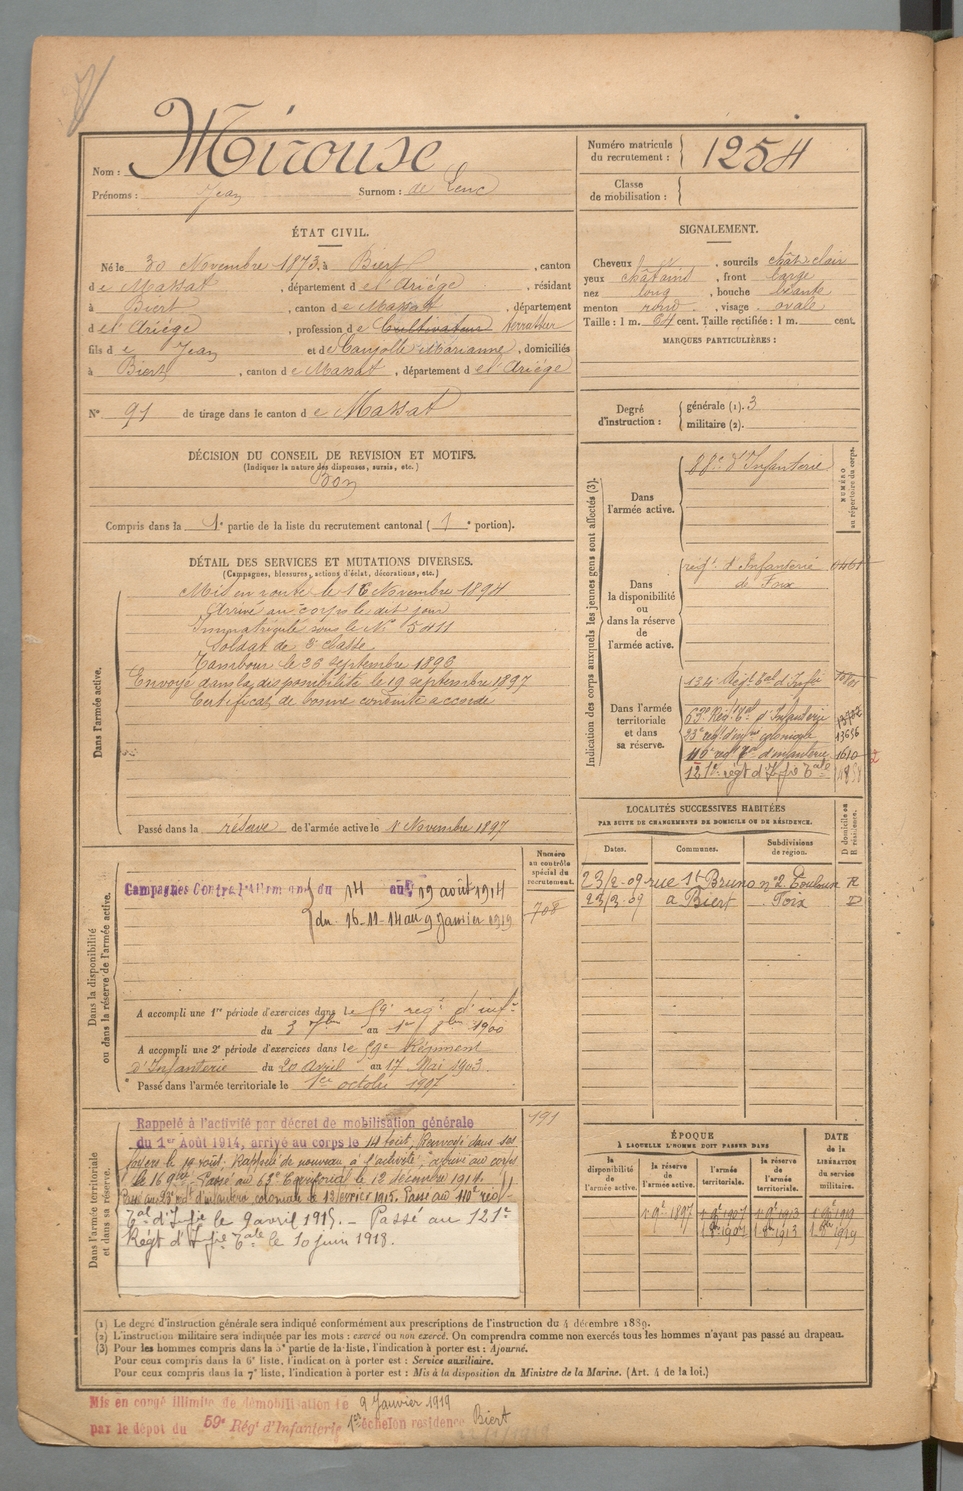 Nom : Mirouse
Prénoms : Jean Surnom : de Lenc
Numéro matricule du recrutement : 1254
Classe de mobilisation :
ÉTAT CIVIL.
Né le 30 Novembre 1873, à Biert, canton
de Massat, département de l'Ariège, résidant
à Biert, canton de Massat, département
de l'Ariège, profession de Cultivateur terrassier
fils de Jean et de Caujolle Marianne, domiciliés
à Biert, canton de Massat, département de l'Ariège
N° 91 de tirage dans le canton de Massat
SIGNALEMENT.
Cheveux, sourcils chât. clair
yeux châtains, front large
nez long, bouche
menton rond, visage ovale
Taille : 1 m. 64 cent. Taille rectifiée : 1 m. cent.
MARQUES PARTICULIÈRES :
Degré d'instruction : générale (1). 3
militaire (2).
DÉCISION DU CONSEIL DE REVISION ET MOTIFS.
(Indiquer la nature des dispenses, sursis, etc.)
Bon
Compris dans la 1e partie de la liste du recrutement cantonal (1e portion).
DÉTAIL DES SERVICES ET MUTATIONS DIVERSES.
(Campagnes, blessures, actions d'éclat, décorations, etc.)
Dans l'armée active.
Mis en route le 16 Novembre 1894
Arrivé au corps le dit jour
Immatriculé sous le N° 5411
Soldat de 2e classe
Tambour le 26 septembre 1896
Envoyé dans la disponibilité le 19 septembre 1897
Certificat de bonne conduite accordé
Passé dans la réserve de l'armée active le 1er Novembre 1897
Indication des corps auxquels les jeunes gens sont affectés (3).
NUMÉRO au répertoire du corps.
Dans l'armée active.
88e d'Infanterie
Dans la disponibilité ou dans la réserve de l'armée active.
régt. d'Infanterie
de Foix
Dans l'armée territoriale et dans sa réserve.
134e Régt tal d'Infie
63e Rég. tal d'Infanterie
23e régt d'infie coloniale
110e régt tal d'infanterie 1610
121e régt d'Ifie tale
LOCALITÉS SUCCESSIVES HABITÉES
PAR SUITE DE CHANGEMENTS DE DOMICILE OU DE RÉSIDENCE.
Dates. Communes. Subdivisions de région. D domicile ou R résidence.
23/2-09 rue St Bruno n°2 Toulouse R
23/2-09 à Biert Foix D
Dans la disponibilité ou dans la réserve de l'armée active.
Numéro au contrôle spécial du recrutement.
708
Campagnes Contre l'Allemagne du 14 au 19 août 1914
du 16-11-14 au 9 Janvier 1919
A accompli une 1re période d'exercices dans le 59e régt. d'infie
du 3 7bre au 1er 8bre 1900
A accompli une 2e période d'exercices dans le 59e Régiment
d'Infanterie du 20 Avril au 17 Mai 1903.
Passé dans l'armée territoriale le 1er octobre 1907
Dans l'armée territoriale et dans sa réserve.
191
Rappelé à l'activité par décret de mobilisation générale
du 1er Août 1914, arrivé au corps le 14 août, Renvoyé dans ses
foyers le 19 août. Rappelé de nouveau à l'activité, arrivé au corps
le 16 9bre. Passé au 63e Territorial le 12 décembre 1914.
Passé au 23e régt d'infanterie coloniale le 13 février 1915. Passé au 110e régt
tal d'Ifie le 9 avril 1915. – Passé au 121e
Régt d'Ifie tale le 10 juin 1918.
ÉPOQUE
À LAQUELLE L'HOMME DOIT PASSER DANS
la disponibilité de l'armée active. la réserve de l'armée active. l'armée territoriale. la réserve de l'armée territoriale.
DATE de la LIBÉRATION du service militaire.
1897 1907 1913 1919
(1) Le degré d'instruction générale sera indiqué conformément aux prescriptions de l'instruction du 4 décembre 1889.
(2) L'instruction militaire sera indiquée par les mots : exercé ou non exercé. On comprendra comme non exercés tous les hommes n'ayant pas passé au drapeau.
(3) Pour les hommes compris dans la 5e partie de la liste, l'indication à porter est : Ajourné.
Pour ceux compris dans la 6e liste, l'indication à porter est : Service auxiliaire.
Pour ceux compris dans la 7e liste, l'indication à porter est : Mis à la disposition du Ministre de la Marine. (Art. 4 de la loi.)
Mis en congé illimité de démobilisation le 9 Janvier 1919
par le dépôt du 59e Régt d'Infanterie 1er échelon résidence Biert